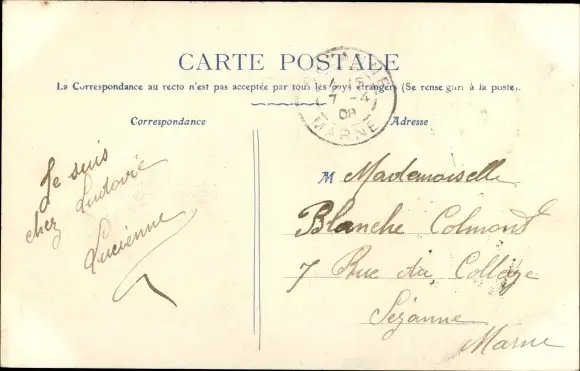 CARTE POSTALE
La Correspondance au recto n'est pas acceptée par tous les pays étrangers (Se renseigner à la poste).
Correspondance
Adresse
7 -4
08
MARNE
Je suis
chez Ludovie
Lucienne
M Mademoiselle
Blanche Colmont
7 Rue du Collège
Sézanne
Marne